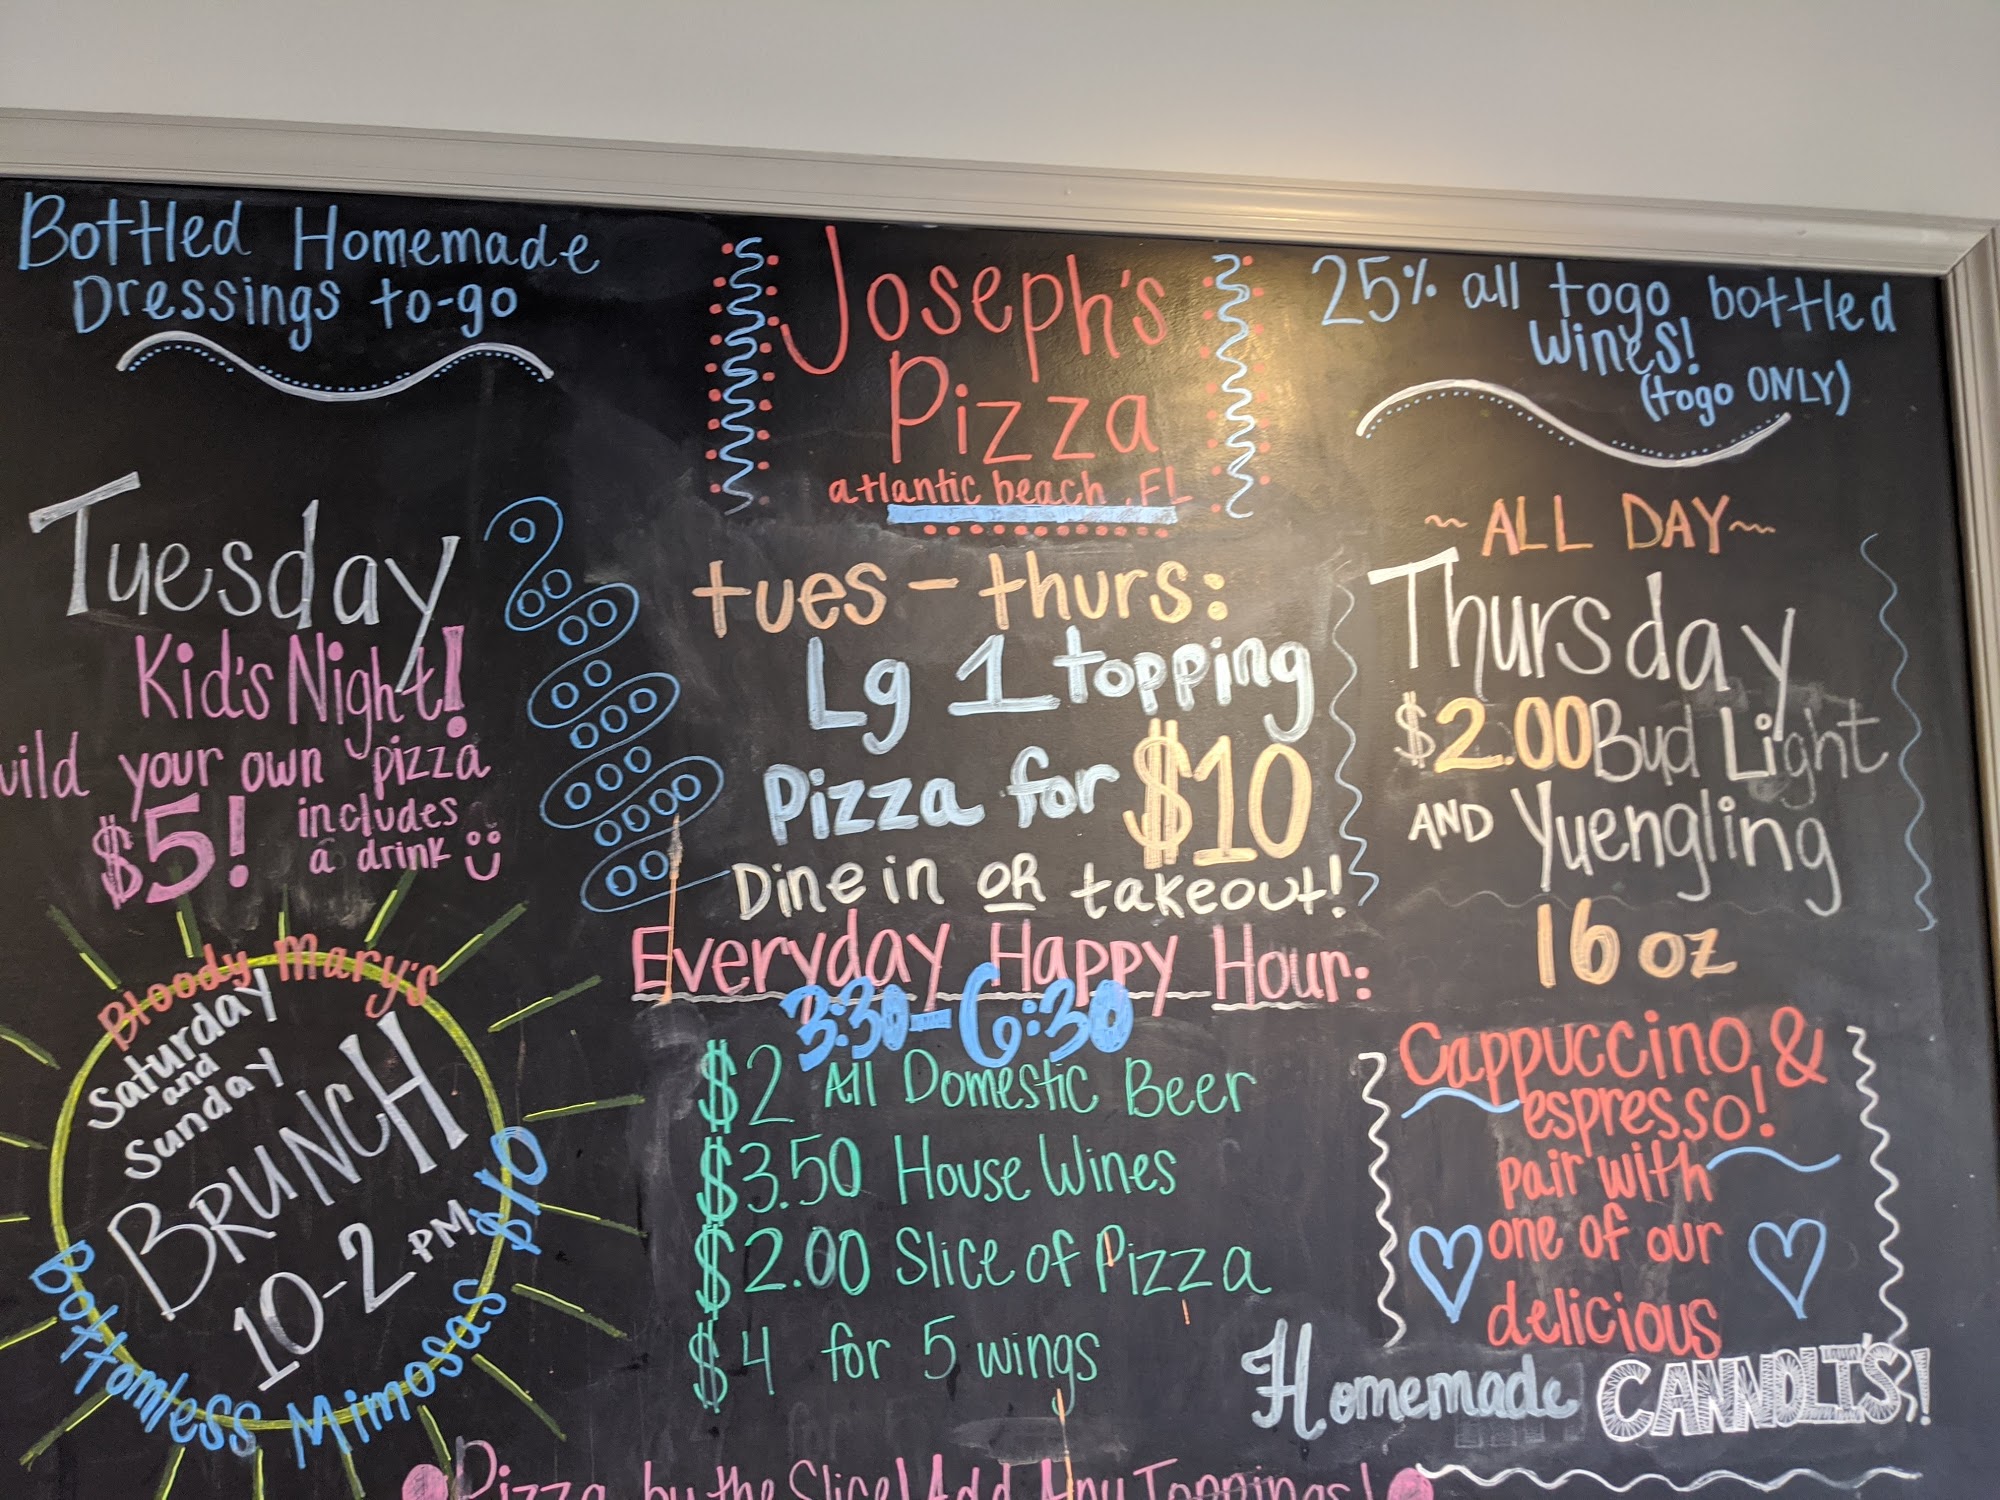 Bottled Homemade
Dressings to-go
Joseph's
Pizza
atlantic beach, FL
25% all togo bottled
Wines!
(togo ONLY)
Tuesday
Kid's Night!
uild your own pizza
$5! includes
a drink
tues - thurs:
Lg 1 topping
Pizza for $10
Dine in OR takeout!
~ ALL DAY ~
Thursday
$2.00 Bud Light
AND Yuengling
16 oz
Bloody Mary's
Saturday
and
Sunday
BRUNCH
10-2 PM
Bottomless Mimosas $10
Everyday Happy Hour:
3:30-6:30
$2 All Domestic Beer
$3.50 House Wines
$2.00 Slice of Pizza
$4 for 5 wings
Cappuccino &
espresso!
pair with
one of our
delicious
Homemade CANNOLI'S!
Pizza by the Slice! Add Any Toppings!